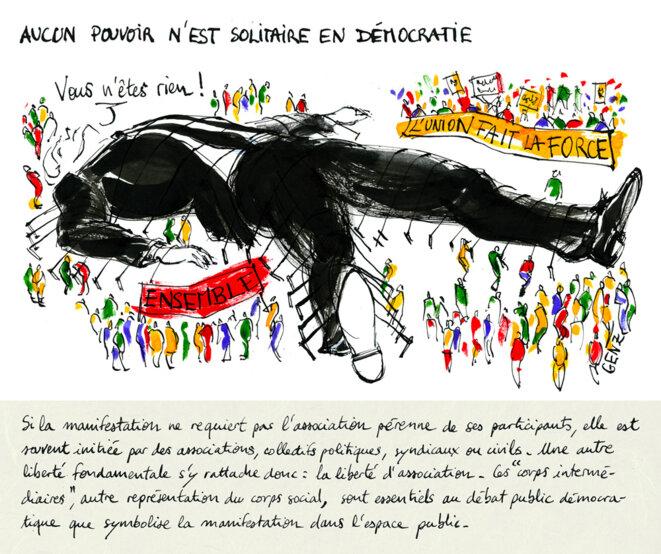 AUCUN POUVOIR N'EST SOLITAIRE EN DÉMOCRATIE
Vous n'êtes rien !
L'UNION FAIT LA FORCE
ENSEMBLE
GENZ
Si la manifestation ne requiert pas l'association pérenne de ses participants, elle est
souvent initiée par des associations, collectifs politiques, syndicaux ou civils. Une autre
liberté fondamentale s'y rattache donc : la liberté d'association. Ces "corps intermé-
diaires", autre représentation du corps social, sont essentiels au débat public démocra-
tique que symbolise la manifestation dans l'espace public.